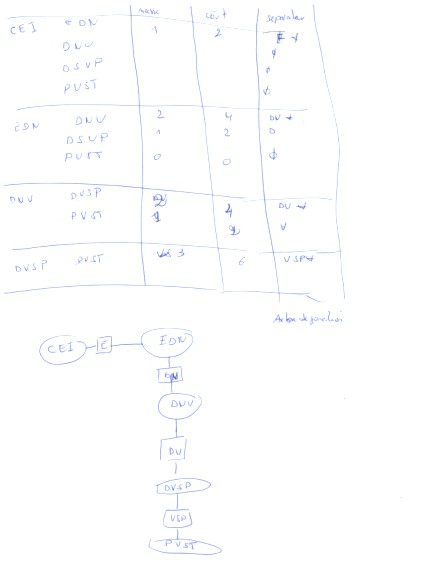 masse coût séparateur
CEI EDN 1 2
DNV ∅
DSVP ∅
PVST ∅
EDN DNV 2 4 DN
DSVP 1 2 D
PVST 0 0 ∅
DNV DVSP 2 4 DV
PVST 1 2 V
DVSP PVST 3 6 VSP
Arbre de jonction
CEI E EDN
DN
DNV
DV
DVSP
VSP
PVST